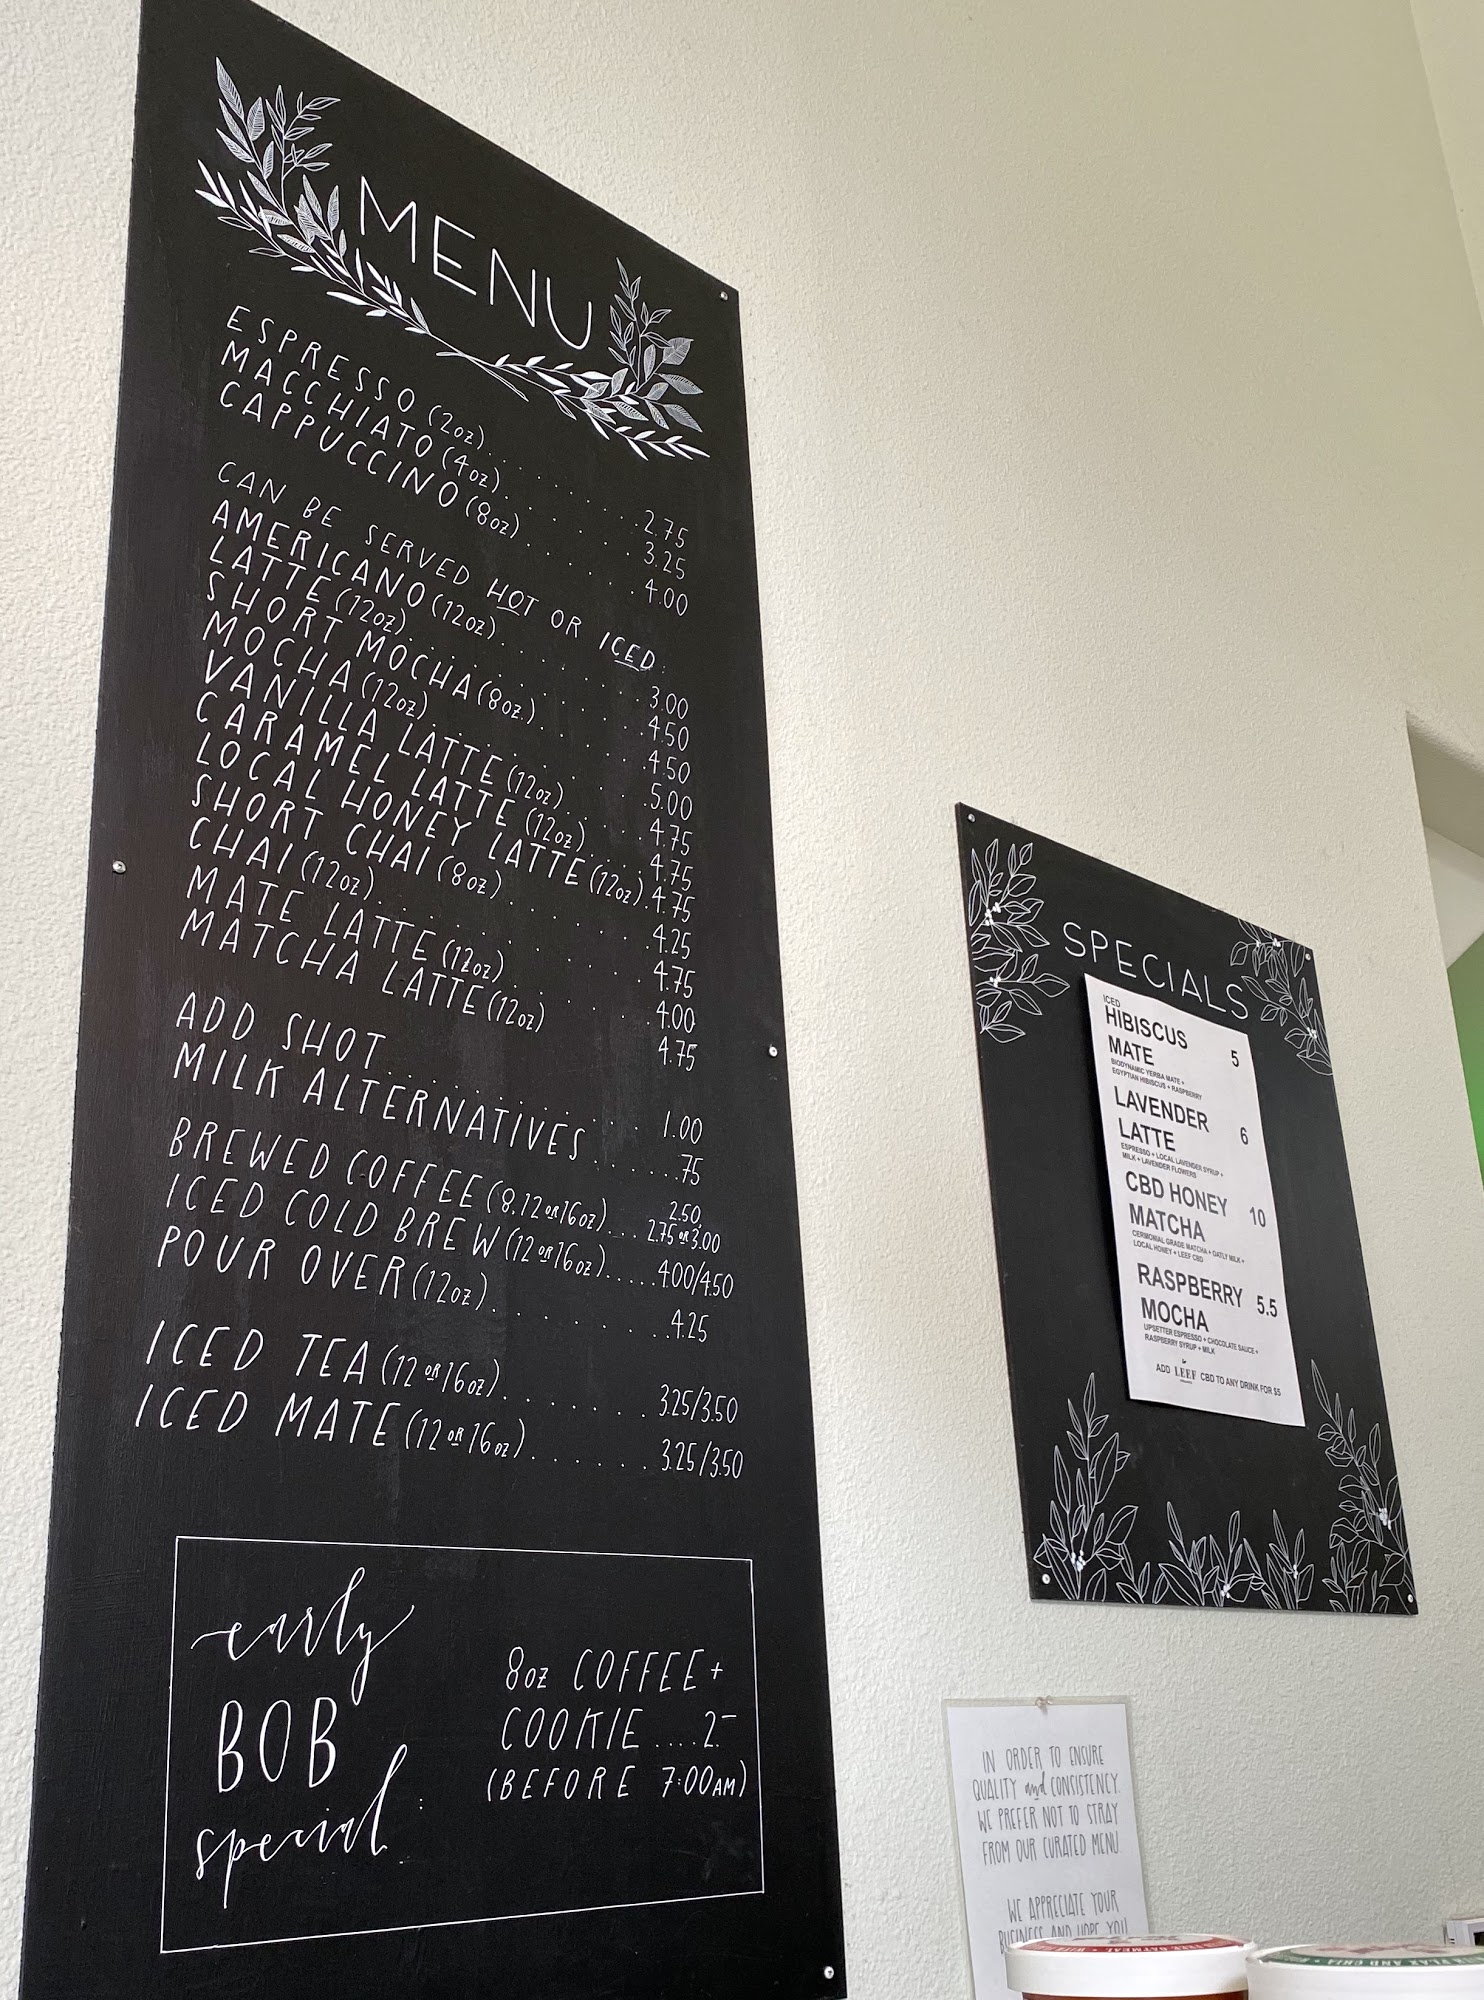 MENU
ESPRESSO (2oz)........2.75
MACCHIATO (4oz).......3.25
CAPPUCCINO (8oz)......4.00
CAN BE SERVED HOT OR ICED:
AMERICANO (12oz).......3.00
LATTE (12oz)..........4.50
SHORT MOCHA (8oz.)......4.50
MOCHA (12oz)..........5.00
VANILLA LATTE (12oz)......4.75
CARAMEL LATTE (12oz)....4.75
LOCAL HONEY LATTE (12oz).4.75
SHORT CHAI (8oz).......4.25
CHAI (12oz)...........4.75
MATE LATTE (12oz)......4.00
MATCHA LATTE (12oz) 4.75
ADD SHOT............1.00
MILK ALTERNATIVES.......75
BREWED COFFEE (8, 12 OR 16oz)... 2.50,
2.75 OR 3.00
ICED COLD BREW (12 OR 16oz).....4.00/4.50
POUR OVER (12oz)..........4.25
ICED TEA (12 OR 16oz)........3.25/3.50
ICED MATE (12 OR 16oz).......3.25/3.50
early
BOB
special:
8oz COFFEE +
COOKIE....2.-
(BEFORE 7:00AM)
SPECIALS
ICED
HIBISCUS
MATE 5
BIODYNAMIC YERBA MATE +
EGYPTIAN HIBISCUS + RASPBERRY
LAVENDER
LATTE 6
ESPRESSO + LOCAL LAVENDER SYRUP +
MILK + LAVENDER FLOWERS
CBD HONEY
MATCHA 10
CERIMONIAL GRADE MATCHA + OATLY MILK +
LOCAL HONEY + LEEF CBD
RASPBERRY
MOCHA 5.5
UPSETTER ESPRESSO + CHOCOLATE SAUCE +
RASPBERRY SYRUP + MILK
ADD LEEF CBD TO ANY DRINK FOR $5
IN ORDER TO ENSURE
QUALITY and CONSISTENCY,
WE PREFER NOT TO STRAY
FROM OUR CURATED MENU.
WE APPRECIATE YOUR
BUSINESS AND HOPE YOU
OATMEAL
FLAX AND CHIA